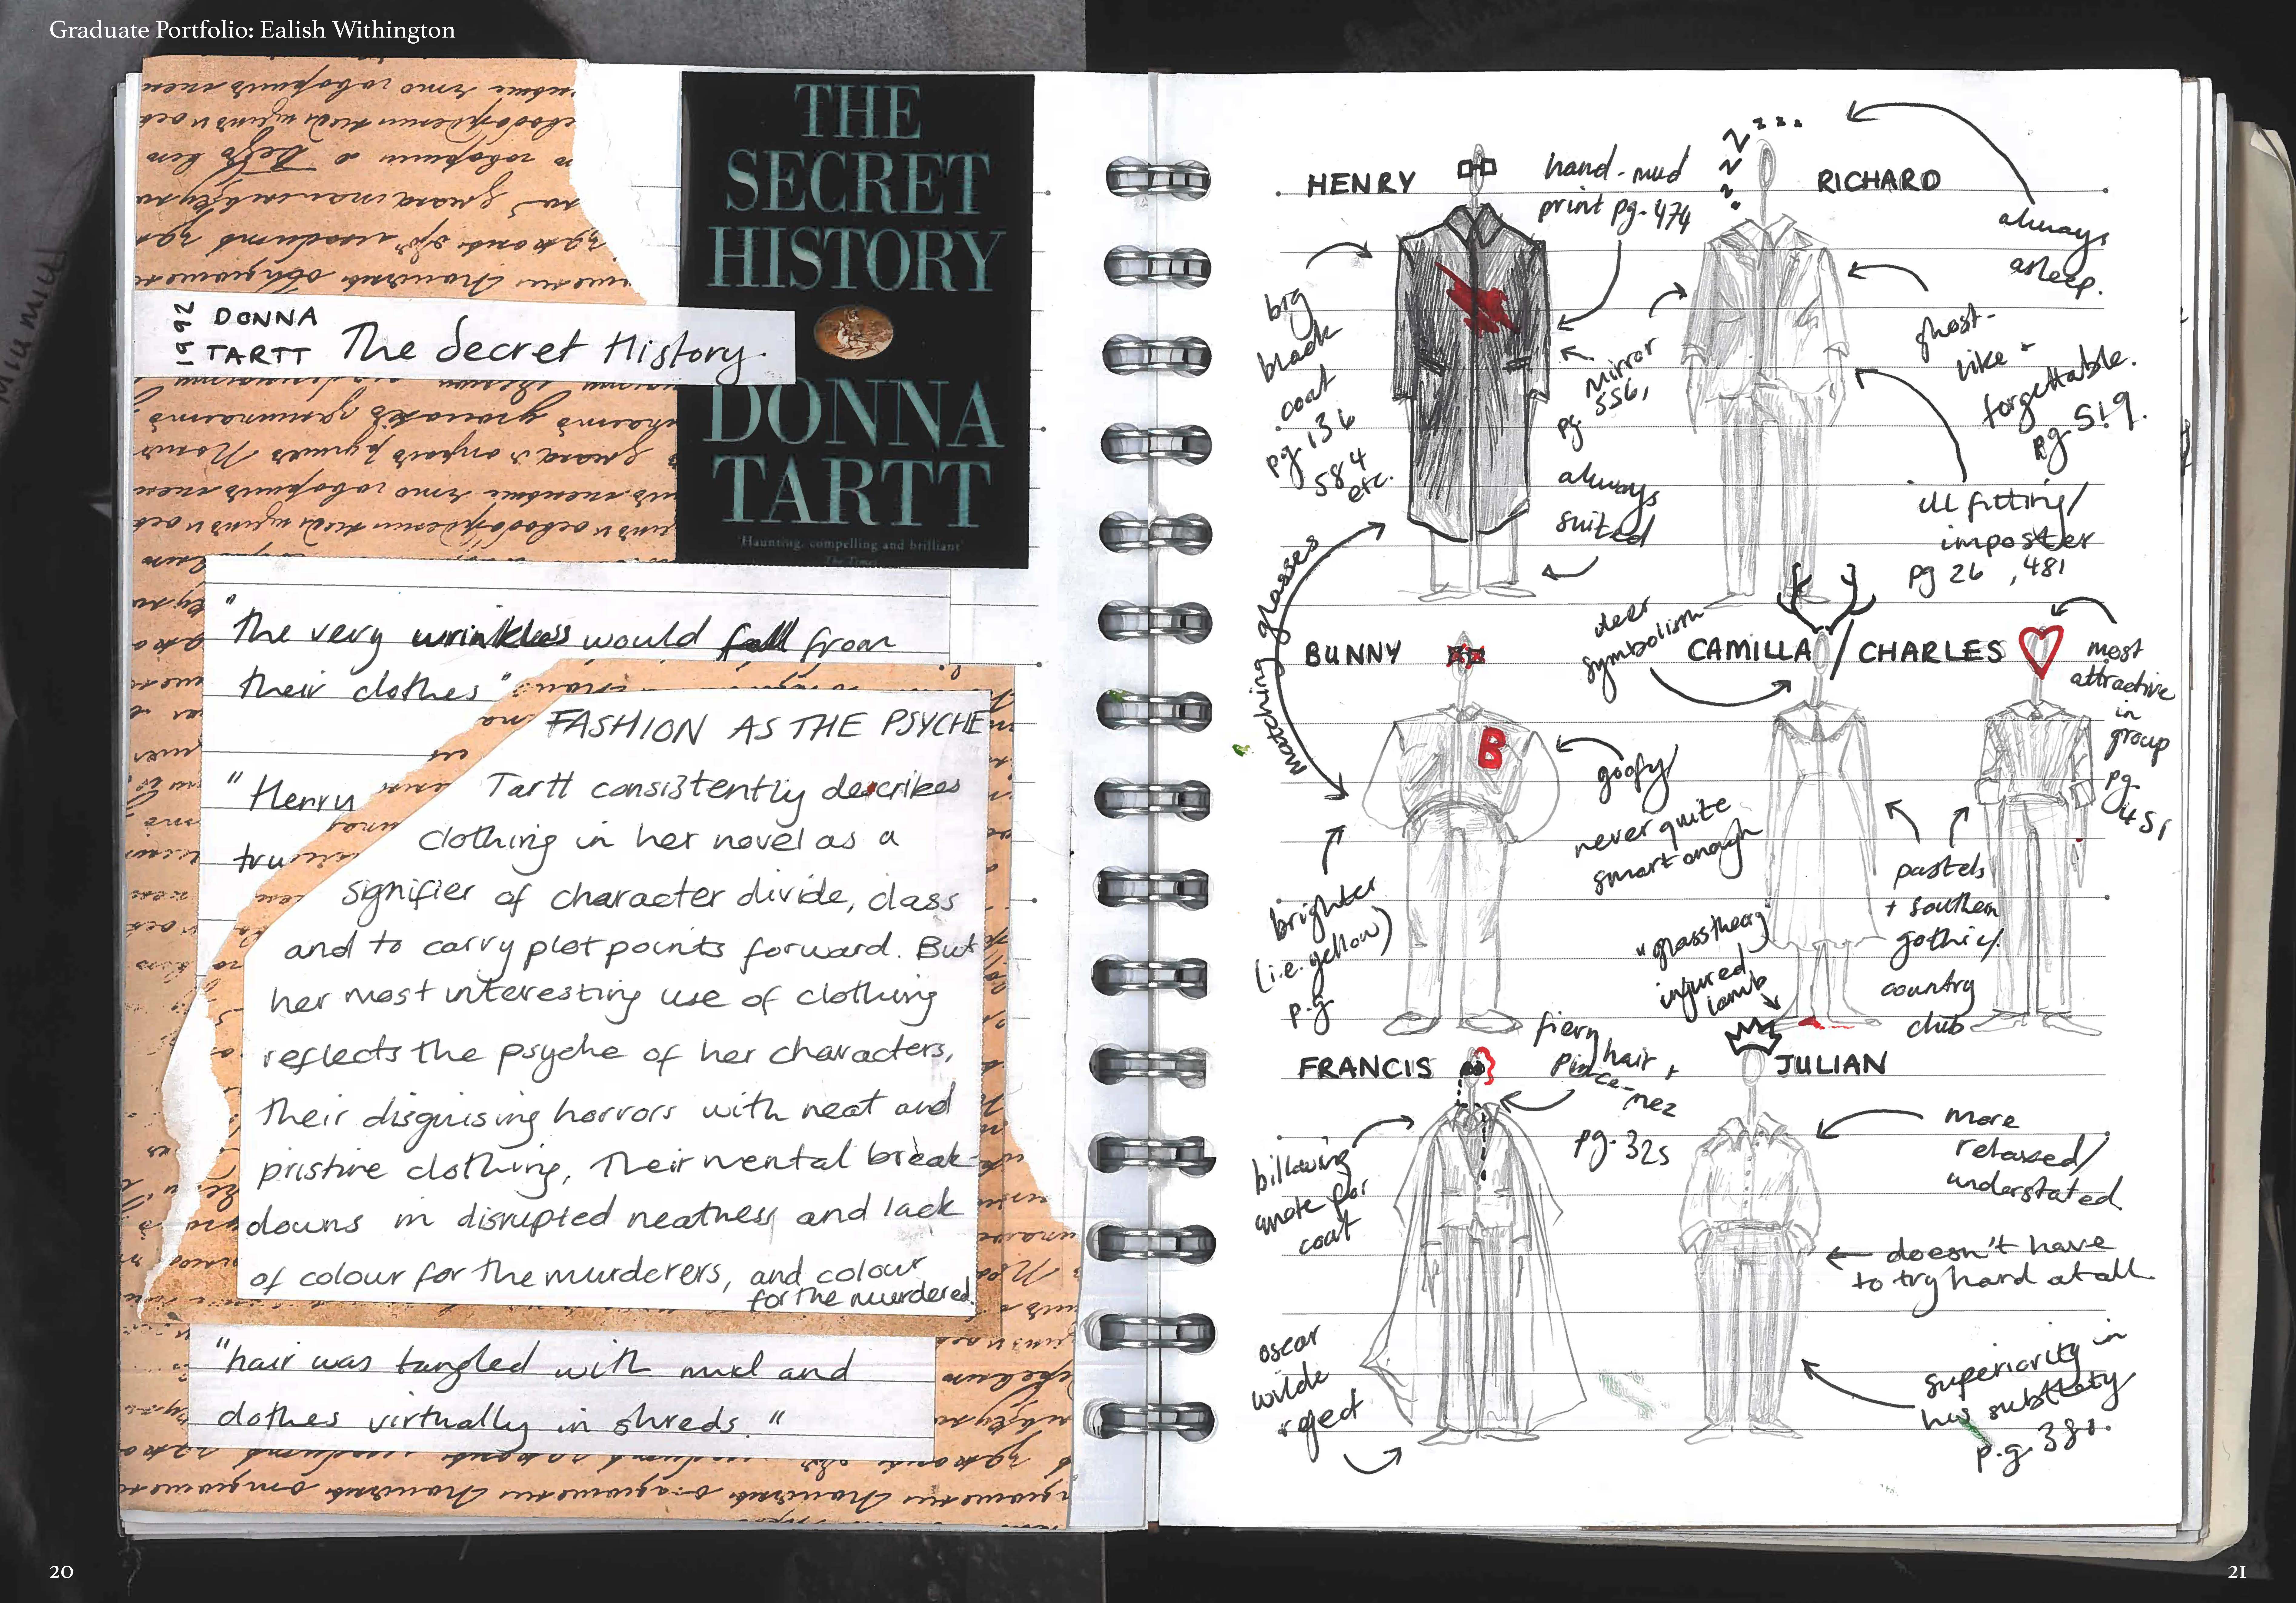 Graduate Portfolio: Ealish Withington
THE
SECRET
HISTORY
DONNA
TARTT
'Haunting, compelling and brilliant'
The Times
1992
DONNA
TARTT
The Secret History.
"the very wrinkles would fall from
their clothes"
"Henry
tru
FASHION AS THE PSYCHE
Tartt consistently describes
clothing in her novel as a
signifier of character divide, class
and to carry plot points forward. But
her most interesting use of clothing
reflects the psyche of her characters,
their disguising horrors with neat and
pristine clothing, their mental break-
downs in disrupted neatness and lack
of colour for the murderers, and colour
for the murdered.
"hair was tangled with mud and
clothes virtually in shreds."
20
HENRY
hand-mud
print pg. 474
big
black
coat
pg. 136
584
etc.
mirror
pg. 556,
always
suited
matching glasses
zzzzzz
RICHARD
always
asleep.
ghost-
like +
forgettable.
pg. 519.
ill fitting/
imposter
pg 26, 481
BUNNY
B
goofy/
never quite
smart enough
brighter
(i.e. yellow)
p.g.
deer
symbolism
CAMILLA / CHARLES
most
attractive
in
group
pg.
451
pastels
+ southern
gothic/
country
club
injured
lamb
FRANCIS
fiery
hair +
pince-nez
pg. 325
billowing
quote for
coat
oscar
wilde
reject
JULIAN
more
relaxed/
understated
doesn't have
to try hard at all.
superiority in
his subtlety
p.g. 380.
21